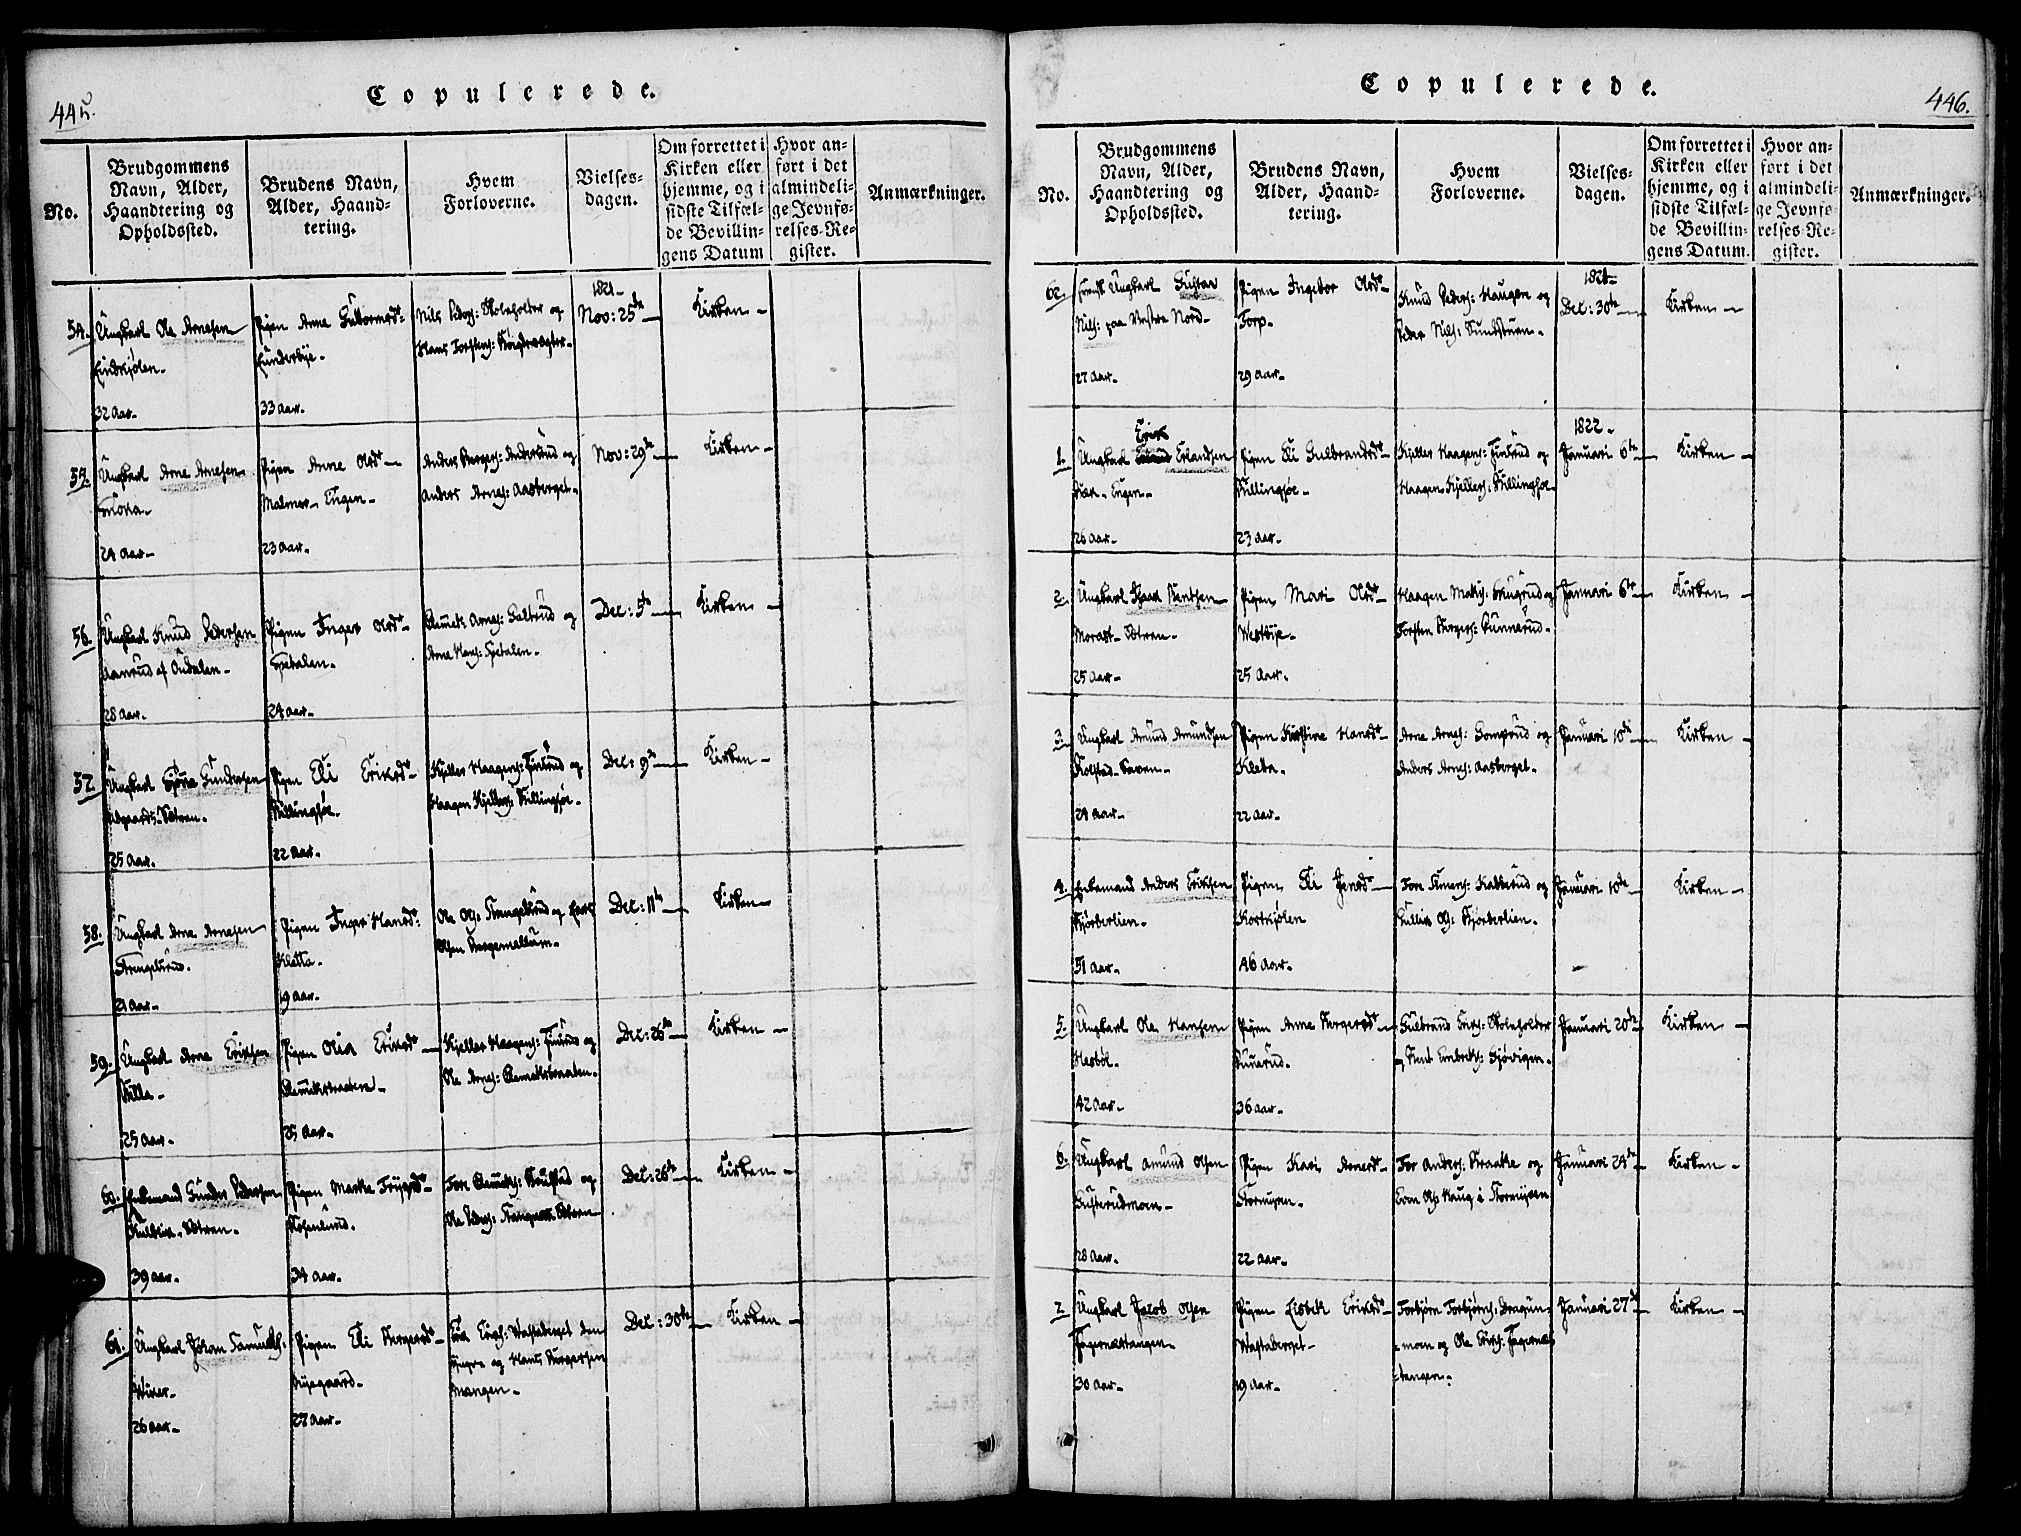 445.
Copulerede.
No.
Brudgommens
Navn, Alder,
Haandtering og
Opholdssted.
Brudens Navn,
Alder, Haand-
tering.
Hvem
Forloverne.
Vielses-
dagen.
Om forrettet i
Kirken eller
hjemme, og i
sidste Tilfæl-
de Bevillin-
gens Datum
Hvor an-
ført i det
almindeli-
ge Jevnfø-
relses-Re-
gister.
Anmærkninger.
54. Ungkarl Ole Arnesen
32 Aar.
Pigen Anne Guttormsd:
Lunderbye.
33 Aar.
Nils Peders: Skoleholder og
Hans Torstens:
1821.
Nov: 25de
Kirken
55. Ungkarl Arne Arnesen
24 Aar.
Pigen Anne Olsd:
Malmer-Engen.
23 Aar.
Anders Børgers: Anderud og
Anders Arnes: Aasberget.
Nov: 29de
Kirken
56. Ungkarl Knud Pedersen
Aanrud af Audalen.
28 Aar.
Pigen Inger Olsd:
Spetalen.
24 Aar.
Arnes: Galterud og
Arne Hans: Spetalen.
Dec: 5te
Kirken
57. Ungkarl Gundersen
25 Aar.
Pigen Eli Eriksd:
Killingsøe.
22 Aar.
Kjeller Haagens: Finsrud og
Haagen Kjellers: Killingsøe.
Dec: 9de
Kirken
58. Ungkarl Arne Arnesen
Strengelsrud.
21 Aar.
Pigen Inger Hansd:
Kletta.
19 Aar.
Ole Ols: Strengelsrud og
Olsen
Dec: 11te
Kirken
59. Ungkarl Arne Eriksen
Killa.
25 Aar.
Pigen Olia Eriksd:
25 Aar.
Kjeller Haagens: Finsrud og
Ole Arnes:
Dec: 26de
Kirken
60. Enkemand Gunder Pedersen
39 Aar.
Pigen Marte
Rosenlund.
34 Aar.
Tore og
Ole Peders:
Dec: 26de
Kirken
61. Ungkarl Johan Samuels:
26 Aar.
Pigen Eli Børgersd:
Nyegaard.
27 Aar.
Tore Engs: Vestaberget den
yngre og Hans Børgersen
Mangen.
Dec: 30te
Kirken
446.
Copulerede.
No.
Brudgommens
Navn, Alder,
Haandtering og
Opholdssted.
Brudens Navn,
Alder, Haand-
tering.
Hvem
Forloverne.
Vielses-
dagen.
Om forrettet i
Kirken eller
hjemme, og i
sidste Tilfæl-
de Bevillin-
gens Datum.
Hvor an-
ført i det
almindeli-
ge Jevnfø-
relses-Re-
gister.
Anmærkninger.
62. Ungkarl Gustav
Nils: paa Vestre Nord-
27 Aar.
Pigen Ingebor Olsd:
Torp.
29 Aar.
Knud Peders: Haugen og
Peder Nils: Sundstuen.
1821.
Dec: 30te
Kirken
1. Ungkarl Erik Erlandsen
Engen.
26 Aar.
Pigen Eli Gulbrandsd:
Killingsøe.
23 Aar.
Kjeller Haagens: Finsrud og
Haagen Kjellers: Killingsøe
1822.
Januari 6te
Kirken
2. Ungkarl Knutsen
25 Aar.
Pigen Mari Olsd:
Westbye.
25 Aar.
Haagen Mats: og
Torsten Børgers: Gunnerud.
Januari 6te
Kirken
3. Ungkarl Amund Amundsen
24 Aar.
Pigen Kirstine Hansd:
Kletta.
22 Aar.
Arne Arnes: og
Anders Arnes: Aasberget.
Januari 10de
Kirken
4. Enkemand Anders Eriksen
Skjørberlien.
51 Aar.
Pigen Eli Jensd:
Kortkjølen
46 Aar.
Tore Simens: Kabberud og
Gullik Ols: Skjørberlien.
Januari 10de
Kirken
5. Ungkarl Ole Hansen
Hesbøl.
42 Aar.
Pigen Anne Børgersd:
36 Aar.
Gulbrand Eriks: Skoleholder
og Knut Embrets: Gjøvigen.
Januari 20de
Kirken
6. Ungkarl Amund Olsen
Gusterudmoen.
28 Aar.
Pigen Kari Arnesd:
Stormyren.
22 Aar.
Tor Anders: Kraake og
Even Ols Haug i Stormyren
Januari 24de
Kirken
7. Ungkarl Jacob Olsen
Fagernæstangen.
30 Aar.
Pigen Lisbet Eriksd:
Westaberget.
19 Aar.
Torbjørn Torbjørns: Dragun-
moen og Ole Eriks: Fagernæs
tangen.
Januari 27de
Kirken